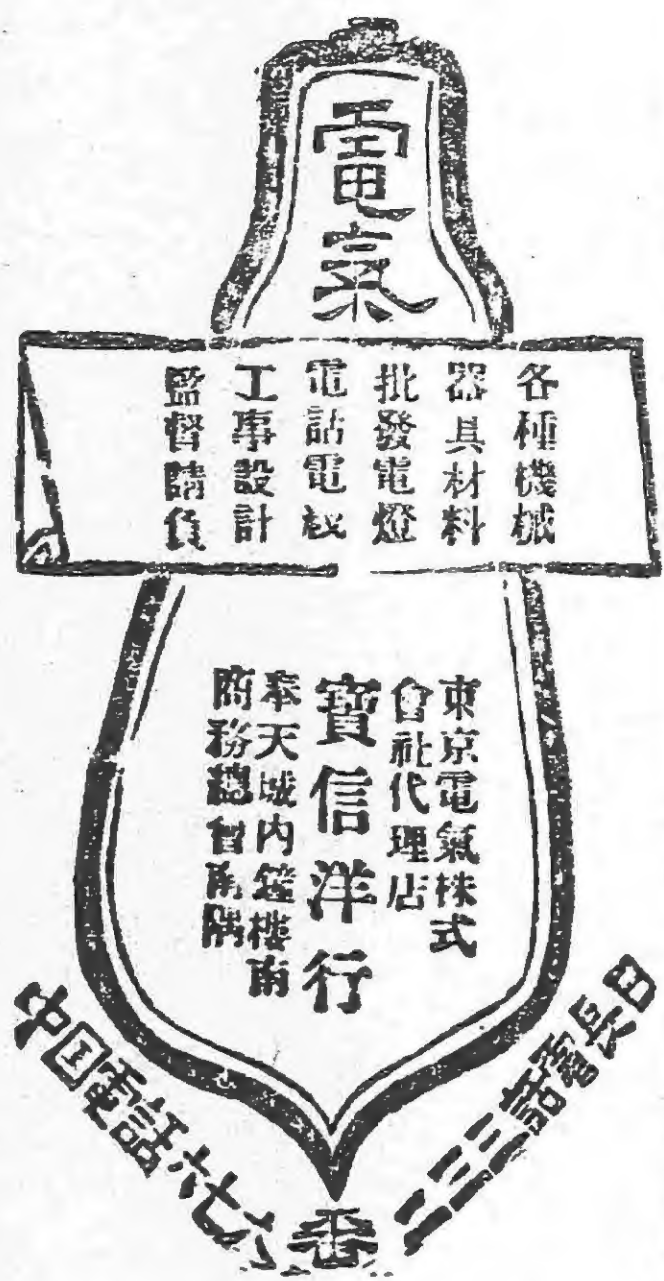 電氣
各種機械
器具材料
批發電燈
電話電
工事設計
監督請負
東京電氣株式
會社代理店
寶信洋行
奉天城内鐘樓南
商務總會南隅
日長電話
中国電話六七六
番